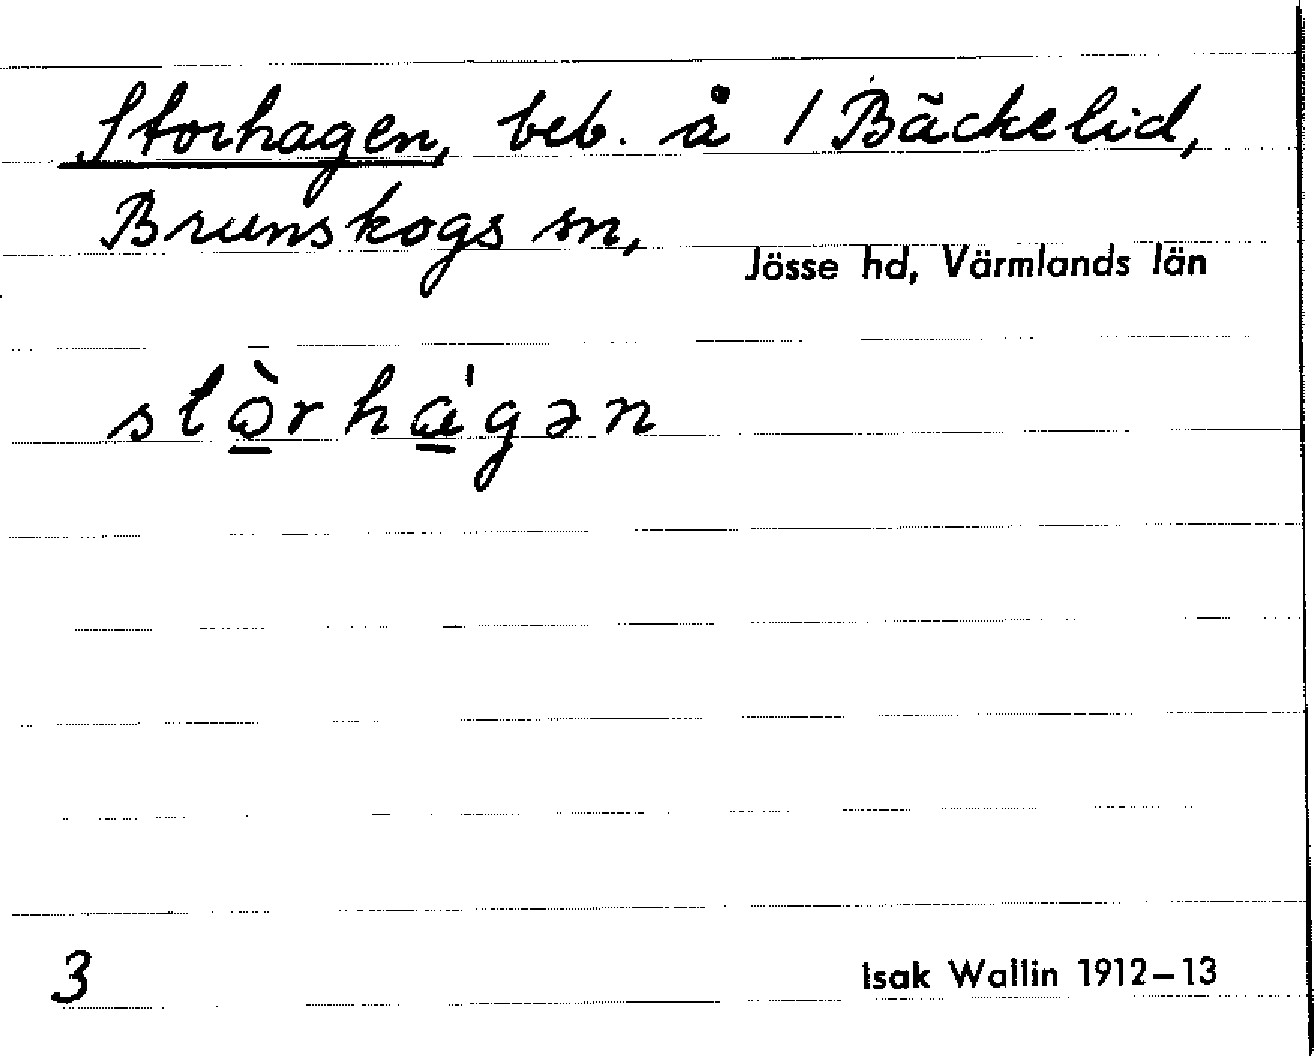 Storhagen, beb. å 1 Bäckelid,
Brunskogs sn,
Jösse hd, Värmlands län
3
Isak Wallin 1912–13